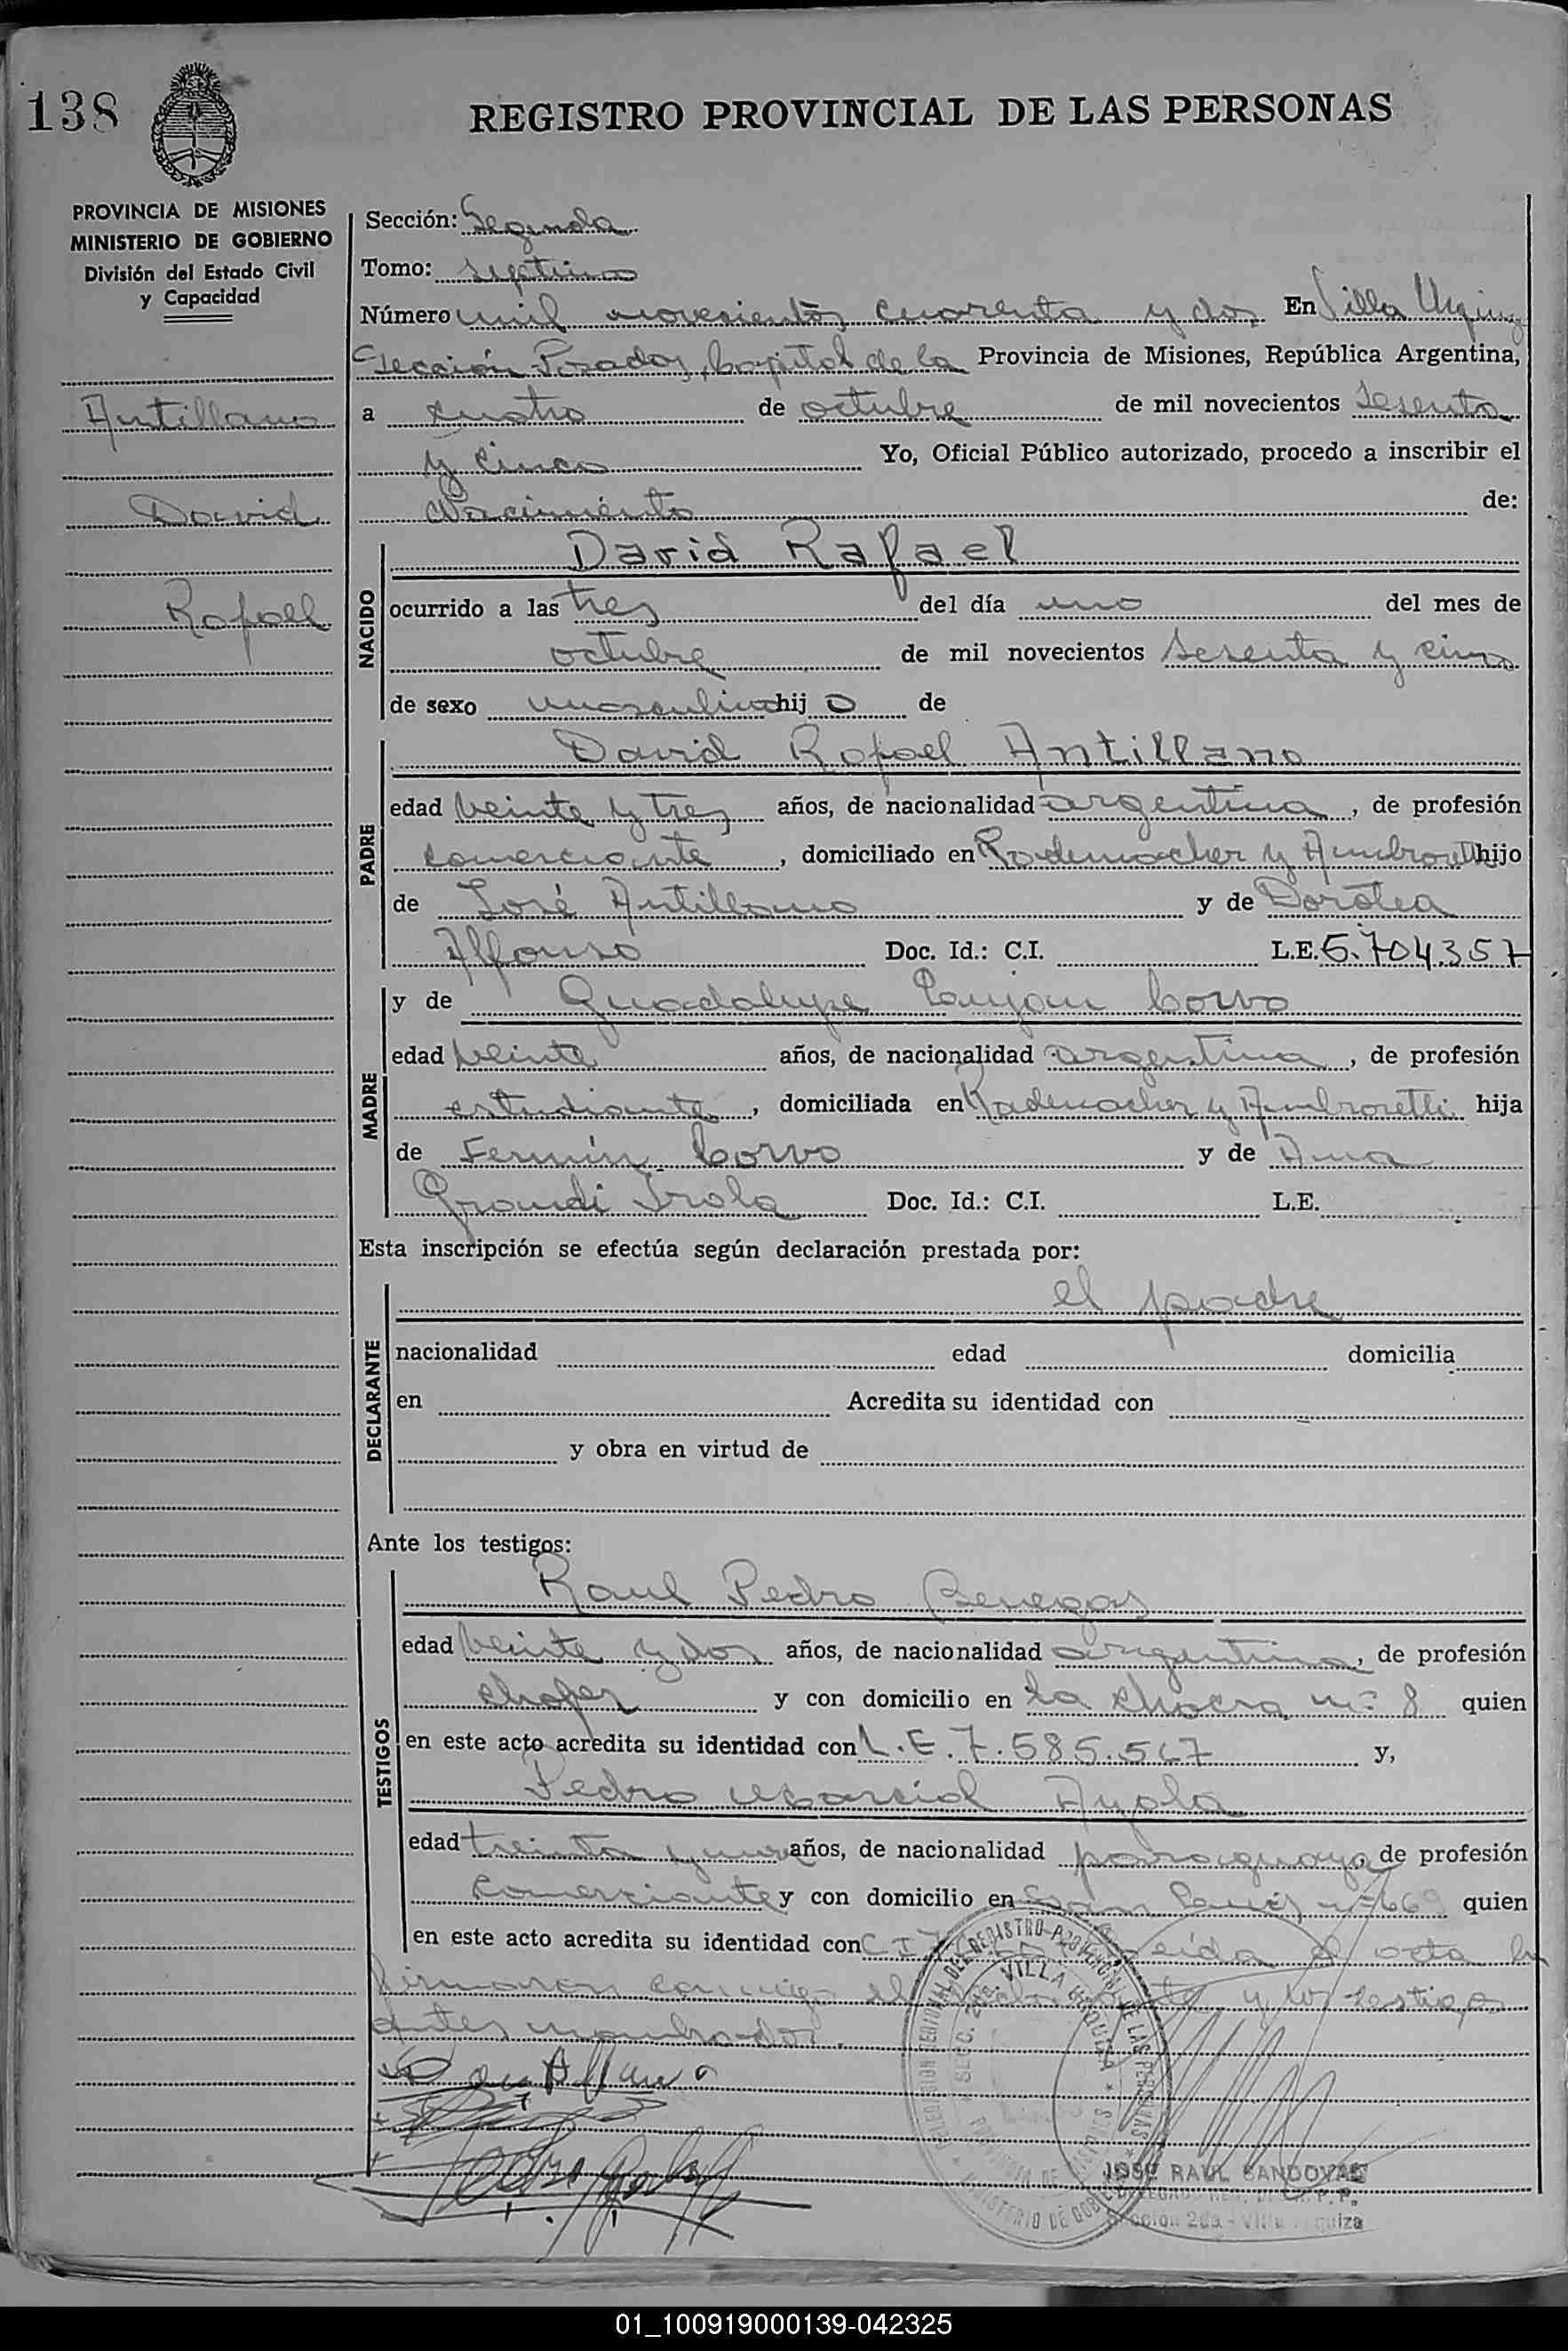 138
REGISTRO PROVINCIAL DE LAS PERSONAS
PROVINCIA DE MISIONES
MINISTERIO DE GOBIERNO
División del Estado Civil
y Capacidad
Antillano
David
Rafael
Sección: Segunda
Tomo: septimo
Número mil novecientos cuarenta y dos En Villa Urquiza
Sección Posadas, Capital de la Provincia de Misiones, República Argentina,
a cuatro de octubre de mil novecientos sesenta
y cinco Yo, Oficial Público autorizado, procedo a inscribir el
Nacimiento de:
NACIDO
David Rafael
ocurrido a las tres del día uno del mes de
octubre de mil novecientos sesenta y cinco
de sexo masculino hijo de
PADRE
David Rafael Antillano
edad veinte y tres años, de nacionalidad argentina, de profesión
comerciante, domiciliado en Rademacher y Ambrosetti hijo
de José Antillano y de Dorotea
Alfonso Doc. Id.: C.I. L.E. 5.704.357
MADRE
y de Guadalupe Lujan Corvo
edad veinte años, de nacionalidad argentina, de profesión
estudiante, domiciliada en Rademacher y Ambrosetti hija
de Fermín Corvo y de Ana
Grandi Irola Doc. Id.: C.I. L.E.
Esta inscripción se efectúa según declaración prestada por:
DECLARANTE
el padre
nacionalidad edad domicilia
en Acredita su identidad con
y obra en virtud de
Ante los testigos:
TESTIGOS
Raul Pedro Benegas
edad veinte y dos años, de nacionalidad argentina, de profesión
chofer y con domicilio en la chacra nº 8 quien
en este acto acredita su identidad con L.E. 7.585.567 y,
Pedro Marcial Ayala
edad treinta y uno años, de nacionalidad paraguaya, de profesión
comerciante y con domicilio en San Luis nº 669 quien
en este acto acredita su identidad con C I Leida el acta la
firmaron conmigo el y los testigos
antes nombrados.
JOSE RAUL SANDOVAL
Sección 2da - Villa Urquiza
01_100919000139-042325